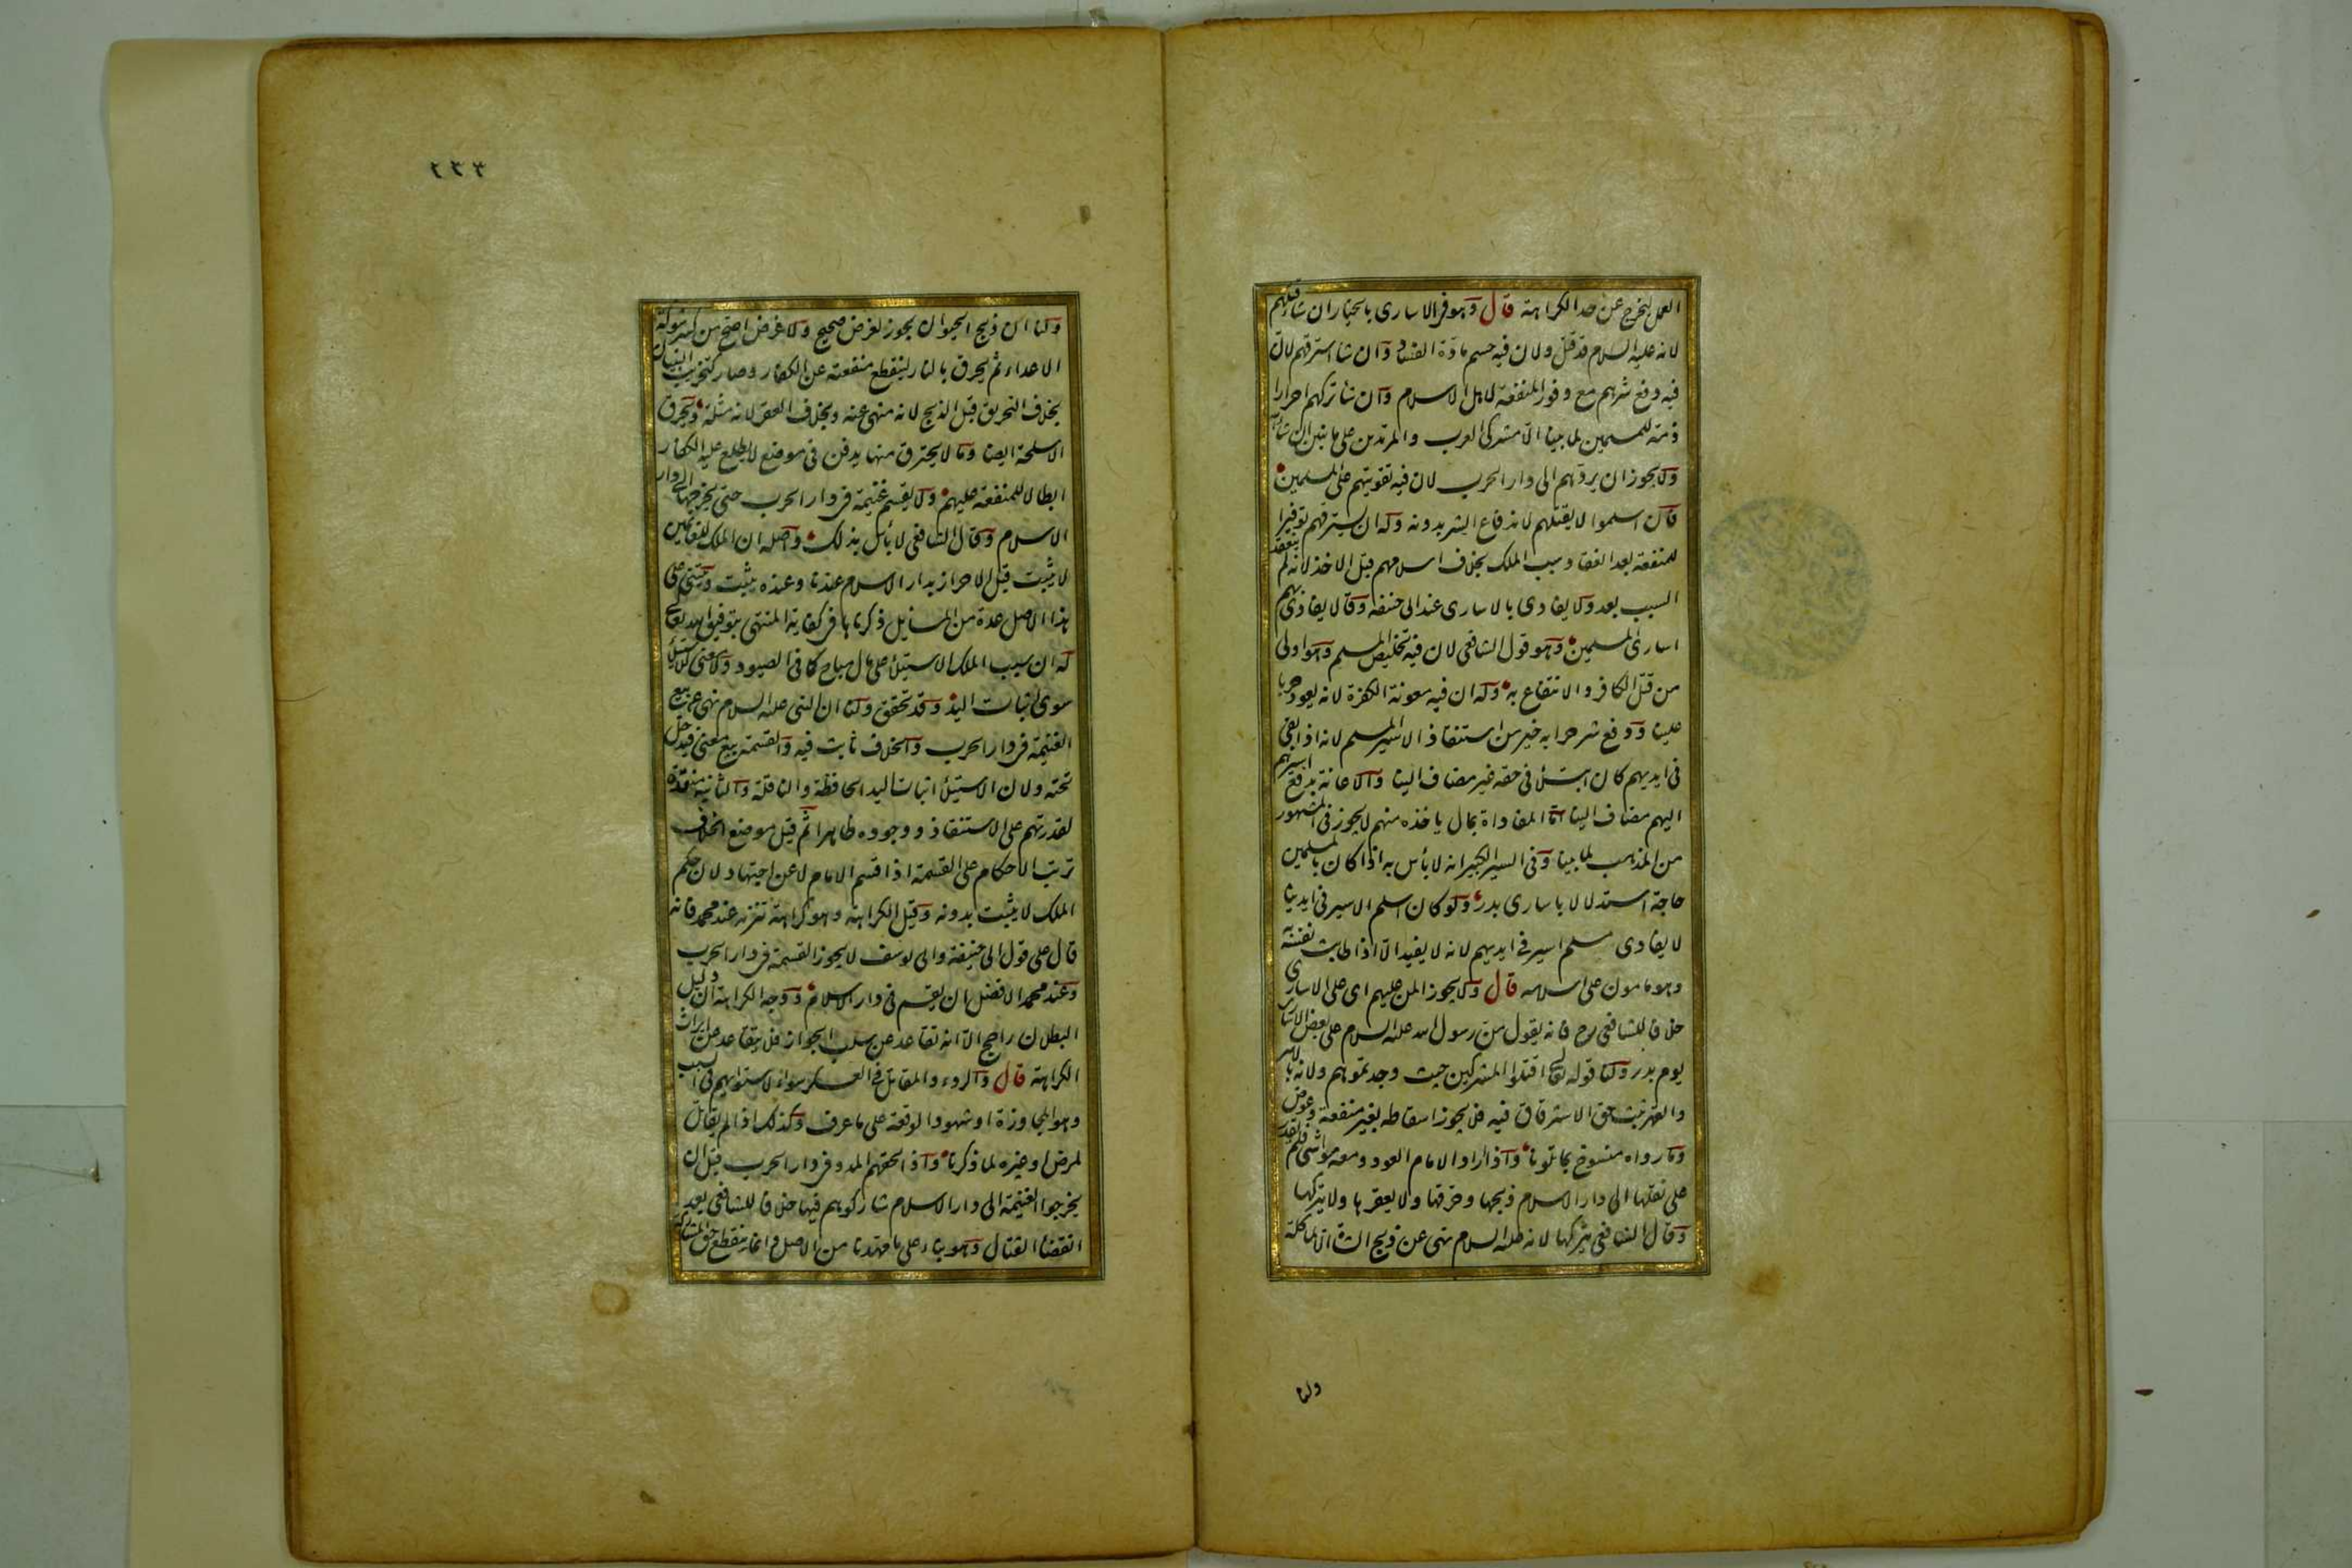 العمل ليخرج عن حد الكراهة قال وهو في الاسارى بالخيار ان شاء قتلهم
لانه عليه السلام قد قتل ولان فيه حسم مادة الفساد وان شاء استرقهم لان
فيه دفع شرهم مع وفور المنفعة لاهل الاسلام وان شاء تركهم احرارا
ذمة للمسلمين لما بينا الا مشركي العرب والمرتدين على ما نبين ان شاء الله
ولا يجوز ان يردهم الى دار الحرب لان فيه تقويتهم على المسلمين
فان اسلموا لا يقتلهم لاندفاع الشر بدونه وله ان يسترقهم توفيرا
للمنفعة بعد انعقاد سبب الملك بخلاف اسلامهم قبل الاخذ لانه لم ينعقد
السبب بعد ولا يفادى بالاسارى عند ابي حنيفة وقالا يفادى بهم
اسارى المسلمين وهو قول الشافعي لان فيه تخليص المسلم وهو اولى
من قتل الكافر والانتفاع به وله ان فيه معونة الكفرة لانه يعود حربا
علينا ودفع شر حرابه خير من استنقاذ الاسير المسلم لانه اذا بقي
في ايديهم كان ابتلاء في حقه غير مضاف الينا والاعانة بدفع اسيرهم
اليهم مضاف الينا اما المفاداة بمال ياخذه منهم لا يجوز في المشهور
من المذهب لما بينا وفي السير الكبير انه لا بأس به اذا كان بالمسلمين
حاجة استدلالا باسارى بدر ولو كان اسلم الاسير في ايدينا
لا يفادى مسلم اسير في ايديهم لانه لا يفيد الا اذا طابت نفسه به
وهو مامون على اسلامه قال ولا يجوز المن عليهم اى على الاسارى
خلافا للشافعي رح فانه يقول من رسول الله عليه السلام على بعض الاسارى
يوم بدر ولنا قوله تعالى اقتلوا المشركين حيث وجدتموهم ولانه بالاسر
والقهر ثبت حق الاسترقاق فيه فلا يجوز اسقاطه بغير منفعة وعوض
وما رواه منسوخ بما تلونا واذا اراد الامام العود ومعه مواشي فلم يقدر
على نقلها الى دار الاسلام ذبحها وحرقها ولا يعقرها ولا يتركها
وقال الشافعي يتركها لانه عليه السلام نهى عن ذبح الشاة الا لمأكلة
ولنا
٢٢٣
ولنا ان ذبح الحيوان يجوز لغرض صحيح ولا غرض اصح من كسر شوكة
الاعداء ثم يحرق بالنار لينقطع منفعته عن الكفار وصار كتخريب البنيان
بخلاف التحريق قبل الذبح لانه منهي عنه وبخلاف العقر لانه مثلة ويحرق
الاسلحة ايضا وما لا يحترق منها يدفن في موضع لا يطلع عليه الكفار
ابطالا للمنفعة عليهم ولا يقسم غنيمة في دار الحرب حتى يخرجها الى دار
الاسلام وقال الشافعي لا بأس بذلك واصله ان الملك للغانمين
لا يثبت قبل الاحراز بدار الاسلام عندنا وعنده يثبت ويبتنى على
هذا الاصل عدة من المسائل ذكرناها في كفاية المنتهى بتوفيق الله تعالى
له ان سبب الملك الاستيلاء على مال مباح كما في الصيود ولا معنى للاستيلاء
سوى اثبات اليد وقد تحقق ولنا ان النبي عليه السلام نهى عن بيع
الغنيمة في دار الحرب والخلاف ثابت فيه والقسمة بيع معنى فيدخل
تحته ولان الاستيلاء اثبات اليد الحافظة والناقلة والثانية منعدمة
لقدرتهم على الاستنقاذ ووجوده ظاهرا ثم قيل موضع الخلاف
ترتب الاحكام على القسمة اذا قسم الامام لا عن اجتهاد لان حكم
الملك لا يثبت بدونه وقيل الكراهة وهو كراهة تنزيه عند محمد فانه
قال على قول ابي حنيفة وابي يوسف لا يجوز القسمة في دار الحرب
وعند محمد الافضل ان يقسم في دار الاسلام ووجه الكراهة ان دليل
البطلان راجح الا انه تقاعد عن سلب الجواز فلا يتقاعد عن ايراث
الكراهة قال والردء والمقاتل في العسكر سواء لاستوائهم في السبب
وهو المجاوزة او شهود الوقعة على ما عرف وكذلك اذا لم يقاتل
لمرض او غيره لما ذكرنا واذا لحقهم المدد في دار الحرب قبل ان
يخرجوا الغنيمة الى دار الاسلام شاركوهم فيها خلافا للشافعي بعد
انقضاء القتال وهو بناء على ما مهدنا من الاصل وانما ينقطع حق المشاركة